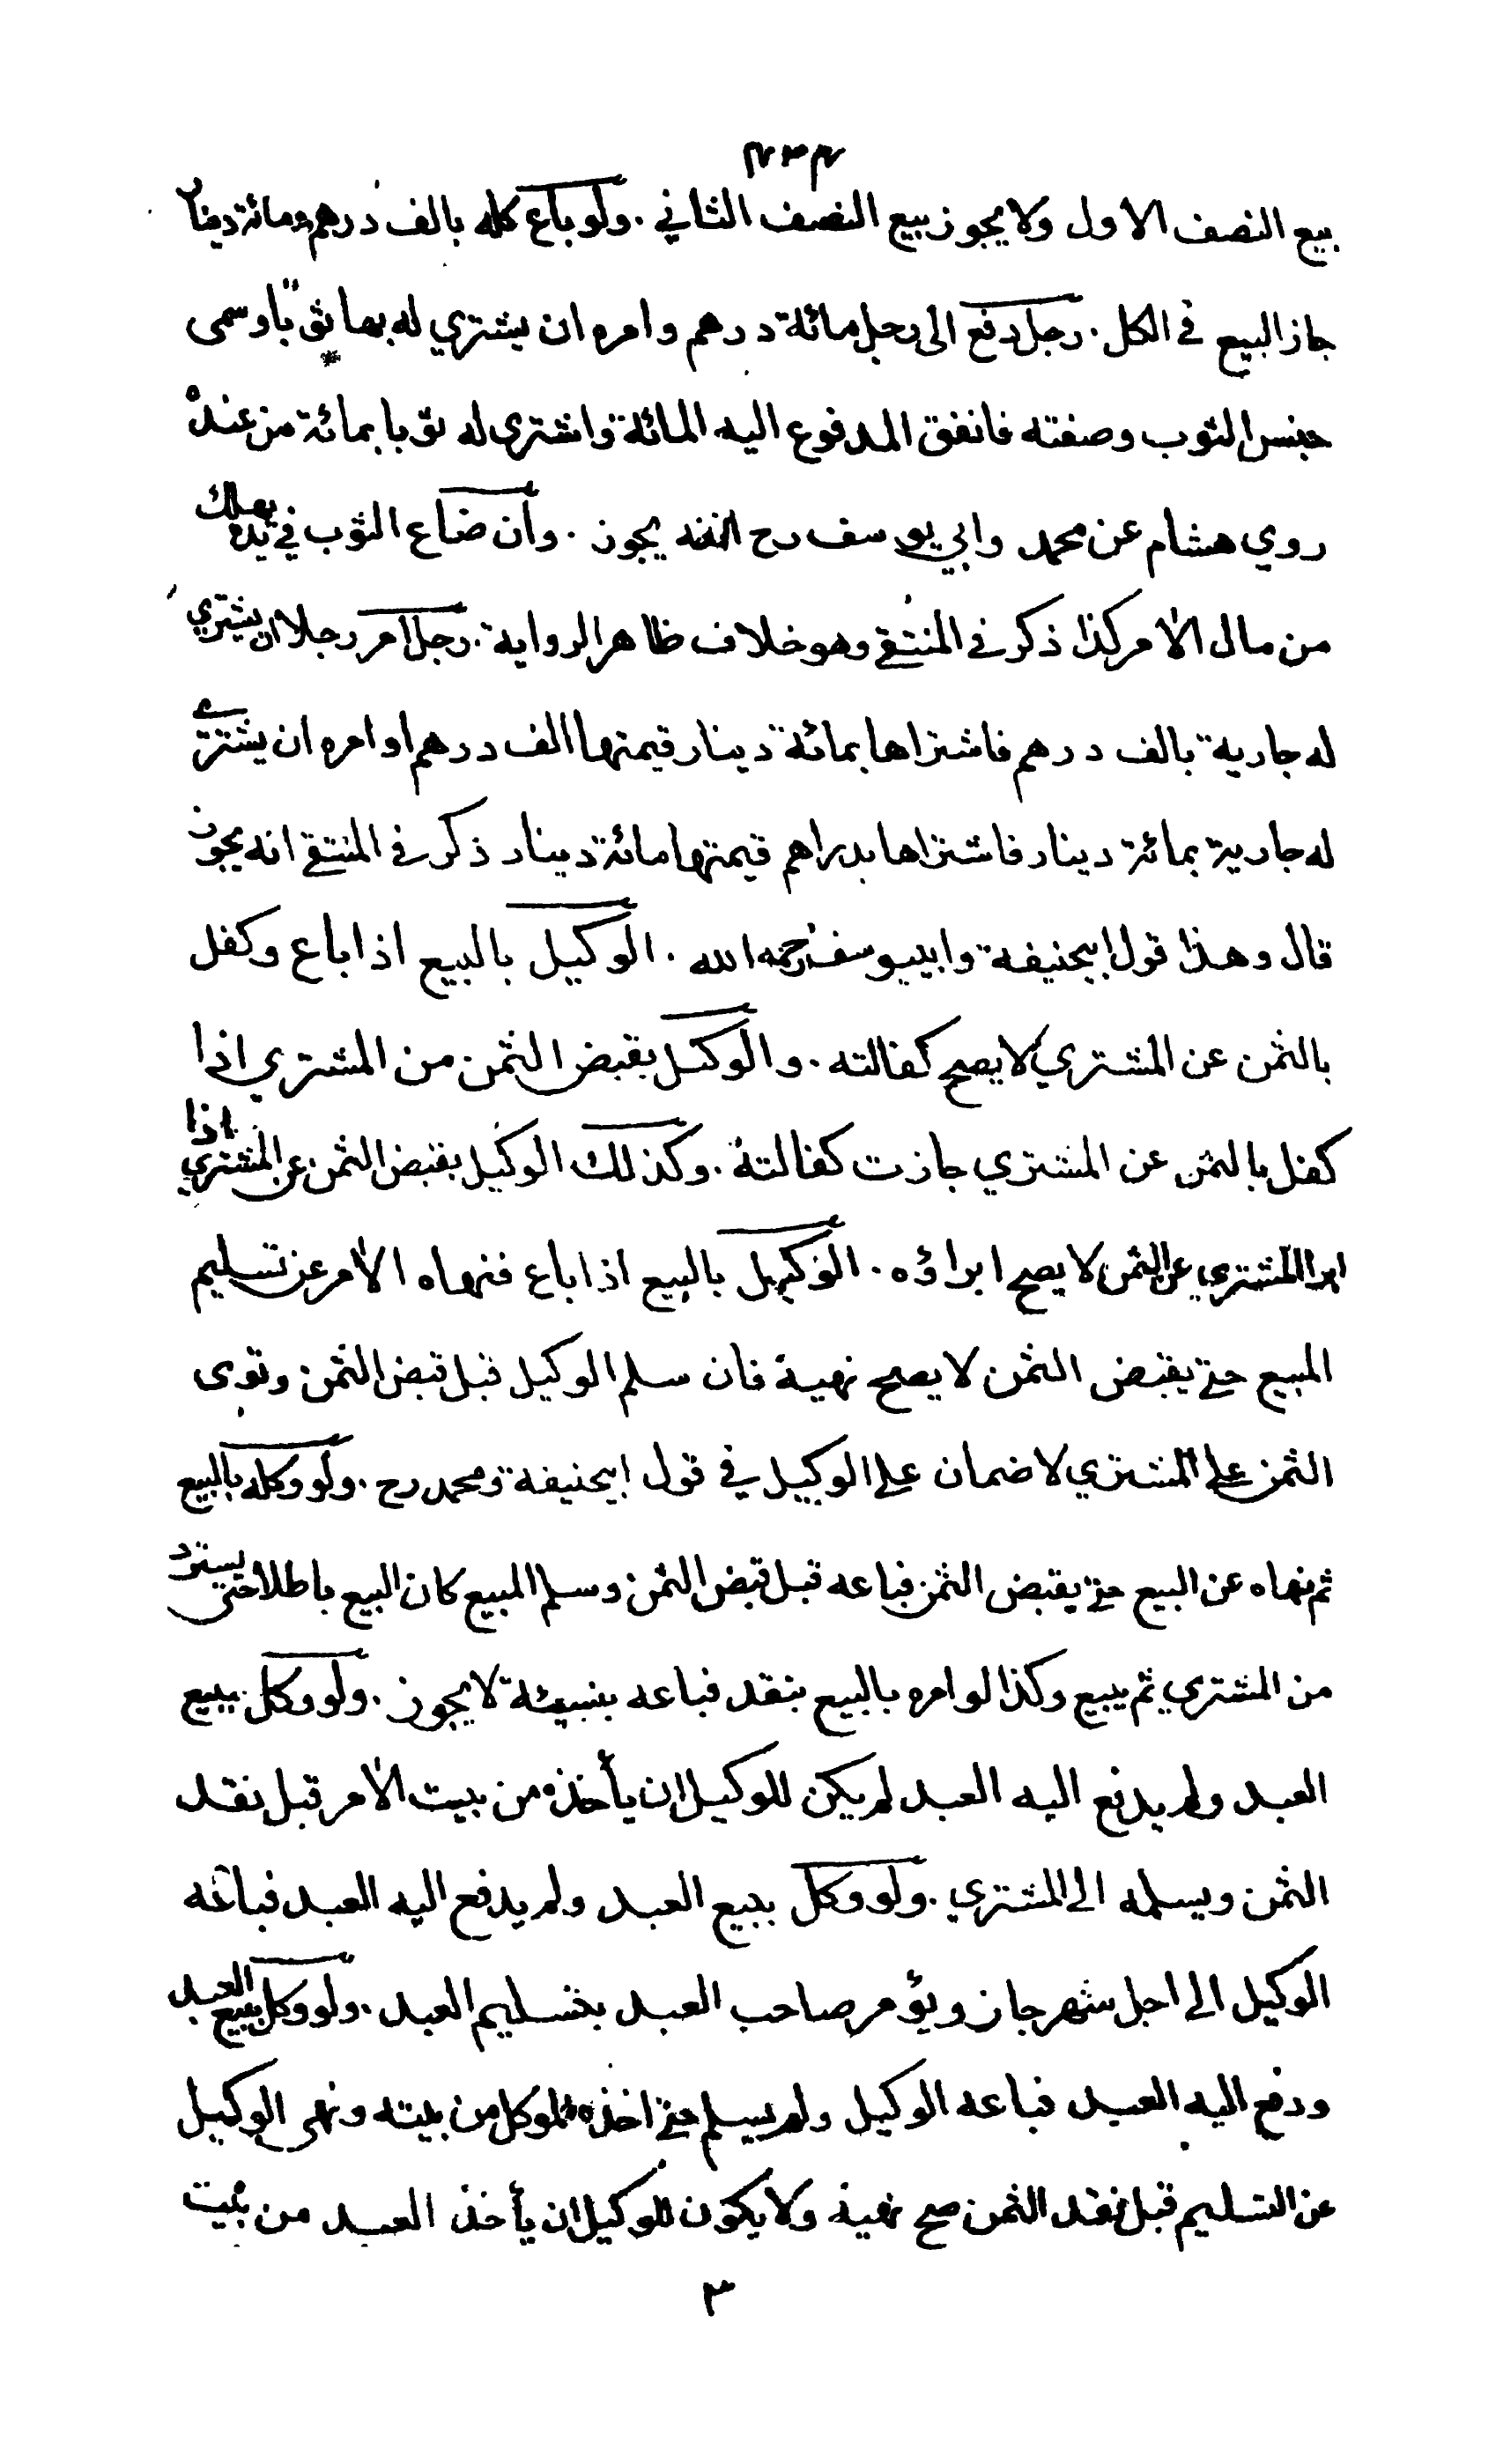 ٣٣٣
بيع النصف الاول ولا يجوز بيع النصف الثاني . ولو باع كله بالف درهم ومائة دينار
جاز البيع في الكل . رجل دفع الى رجل مائة درهم وامره ان يشتري له بها ثوبا وسمى
جنس الثوب وصفته فانفق المدفوع اليه المائة واشترى له ثوبا بمائة من عنده
روي هشام عن محمد وابي يوسف رح انه يجوز . وان ضاع الثوب في يده يهلك
من مال الآمر كذا ذكر في المنتقى وهو خلاف ظاهر الرواية . رجل امر رجلا ان يشتري
له جارية بالف درهم فاشتراها بمائة دينار قيمتها الف درهم او امره ان يشتري
له جارية بمائة دينار فاشتراها بدراهم قيمتها مائة دينار ذكر في المنتقى انه يجوز
قال وهذا قول ابيحنيفة وابييوسف رحمه الله . الوكيل بالبيع اذا باع وكفل
بالثمن عن المشتري لا يصح كفالته . والوكيل بقبض الثمن من المشتري اذا
كفل بالثمن عن المشتري جازت كفالته . وكذلك الوكيل بقبض الثمن عن المشتري اذا
ابرا المشتري عن الثمن لا يصح ابراؤه . الوكيل بالبيع اذا باع فنهاه الآمر عن تسليم
المبيع حتى يقبض الثمن لا يصح نهيه فان سلم الوكيل قبل قبض الثمن وتوى
الثمن على المشتري لا ضمان على الوكيل في قول ابيحنيفة ومحمد رح . ولو وكله بالبيع
ثم نهاه عن البيع حتى يقبض الثمن فباعه قبل قبض الثمن وسلم المبيع كان البيع باطلا حتى يسترد
من المشتري ثم يبيع وكذا لو امره بالبيع بنقد فباعه بنسيئة لا يجوز . ولو وكل ببيع
العبد ولم يدفع اليه العبد لم يكن للوكيل ان يأخذه من بيت الآمر قبل نقد
الثمن ويسلمه الى المشتري . ولو وكل ببيع العبد ولم يدفع اليه العبد فباعه
الوكيل الى اجل شهر جاز ويؤمر صاحب العبد بتسليم العبد . ولو وكل ببيع العبد
ودفع اليه العبد فباعه الوكيل ولم يسلم حتى اخذه الموكل من بيته ونهى الوكيل
عن التسليم قبل نقد الثمن صح نهيه ولا يكون للوكيل ان يأخذ العبد من بيت
٣